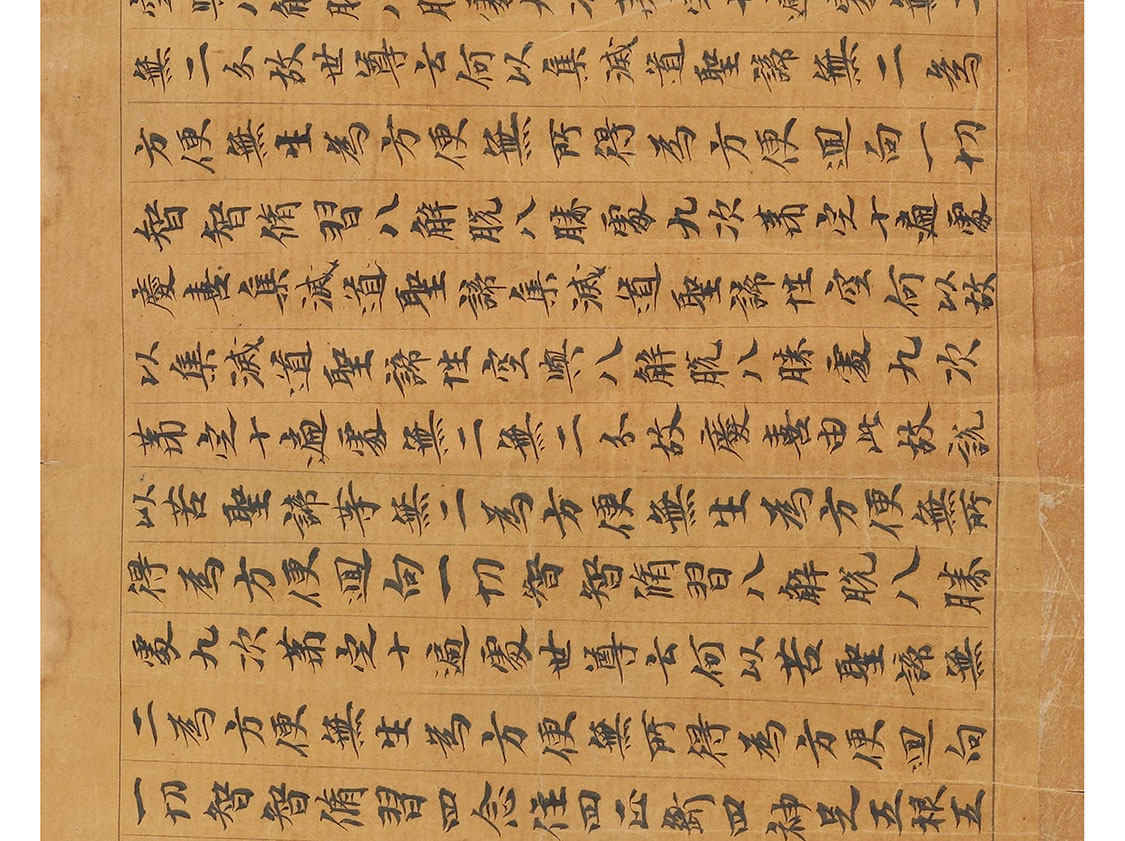 無二分故世尊云何以集滅道聖諦無二為
方便無生為方便無所得為方便迴向一切
智智脩習八解脫八勝處九次第定十遍處
慶喜集滅道聖諦集滅道聖諦性空何以故
以集滅道聖諦性空與八解脫八勝處九次
第定十遍處無二無二分故慶喜由此故說
以苦聖諦等無二為方便無生為方便無所
得為方便迴向一切智智脩習八解脫八勝
處九次第定十遍處世尊云何以苦聖諦無
二為方便無生為方便無所得為方便迴向
一切智智脩習四念住四正斷四神足五根五